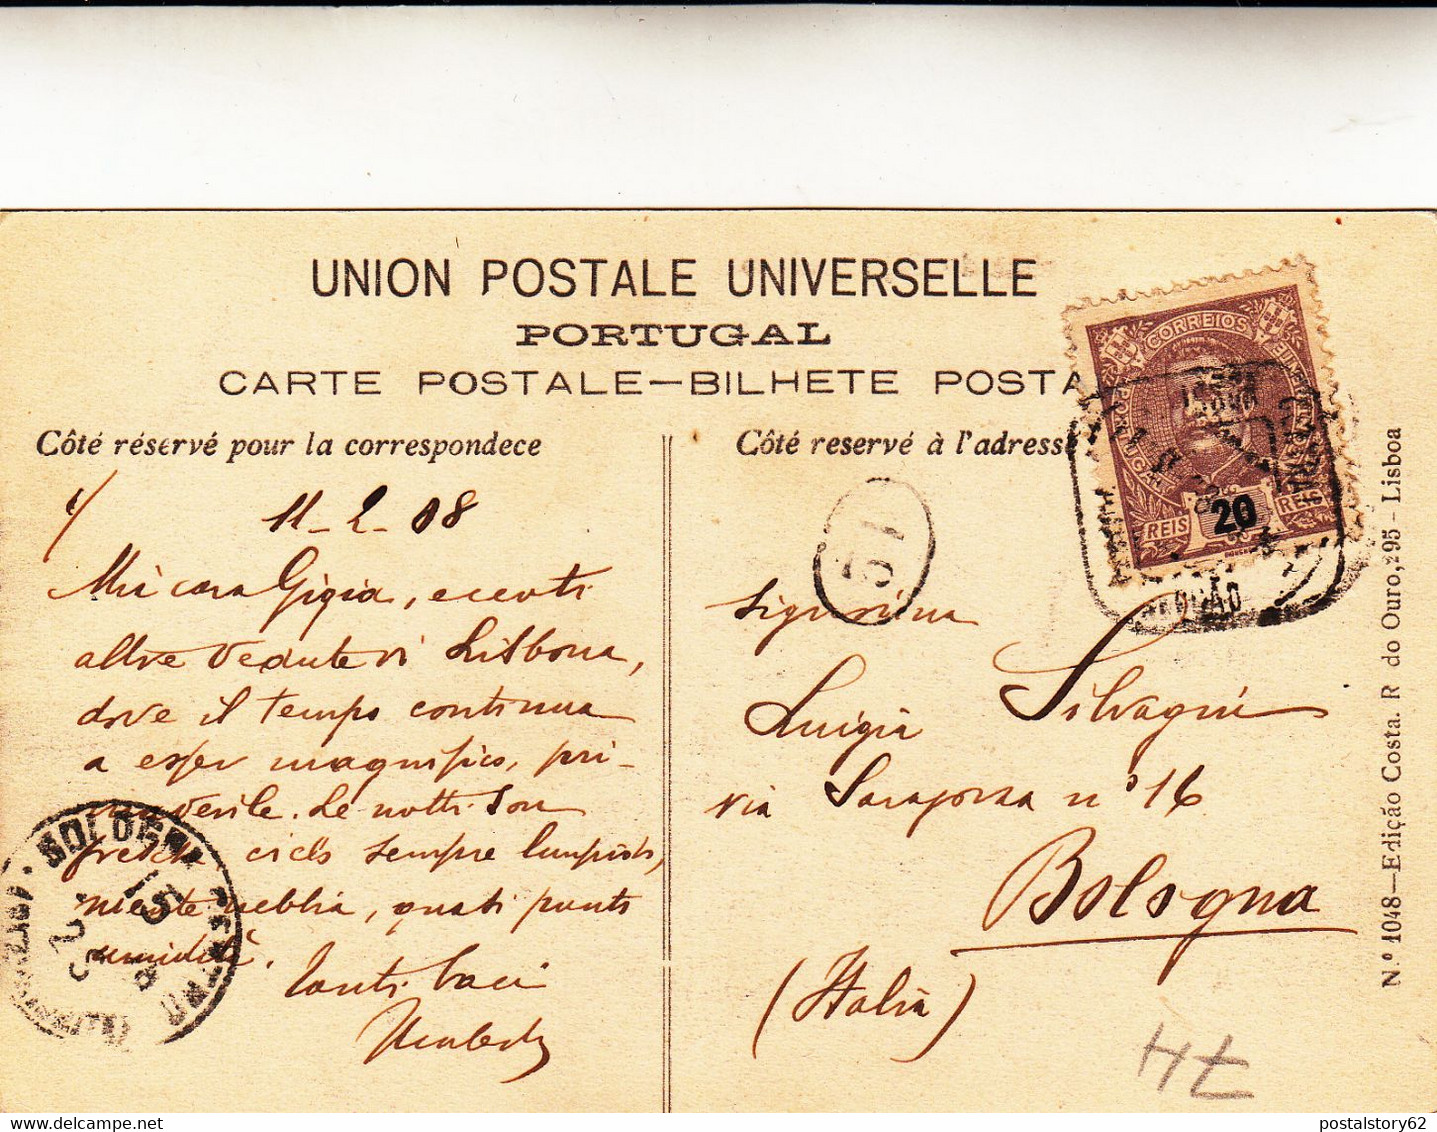 UNION POSTALE UNIVERSELLE
PORTUGAL
CARTE POSTALE—BILHETE POSTA
Côté réservé pour la correspondece
Côté reservé à l'adresse
11-2-08
Mia cara Gigia, eccoti
altre vedute di Lisbona,
dove il tempo continua
a esser magnifico, pri-
maverile. Le notti son
fresche cielo sempre limpido,
niente nebbia, quasi punto
umidità.
Tanti baci
Umberto
CORREIOS
PORTUGAL
REIS 20 REIS
51
Signorina
Luigia Silvagni
via Saragozza nº 16
Bologna
(Italia)
BOLOGNA
15
N.º 1048—Edição Costa. R do Ouro, 295 - Lisboa
postalstory62